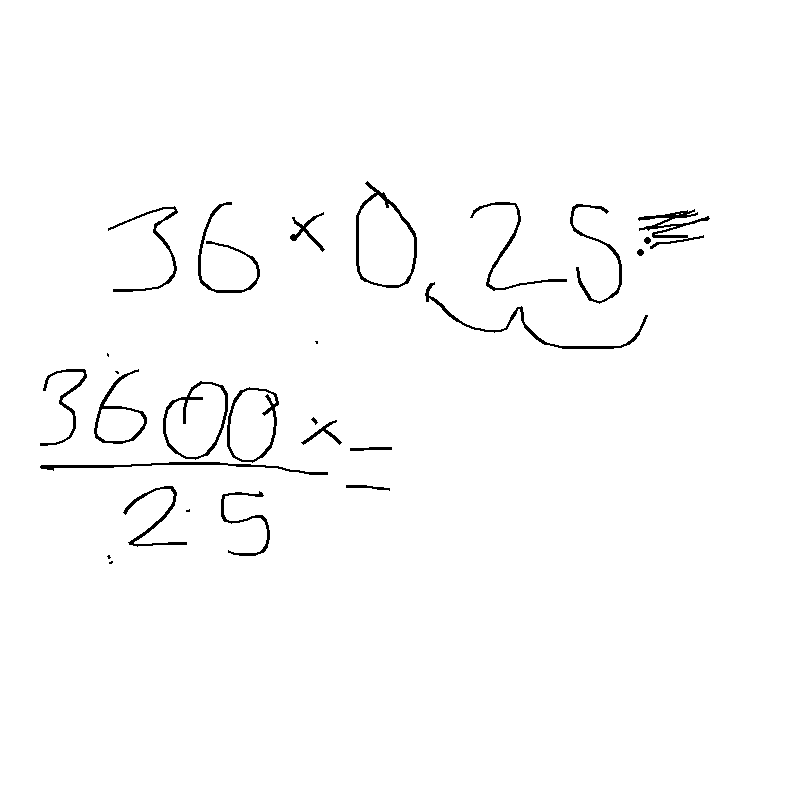 36 × 0,25
3600 × =
25